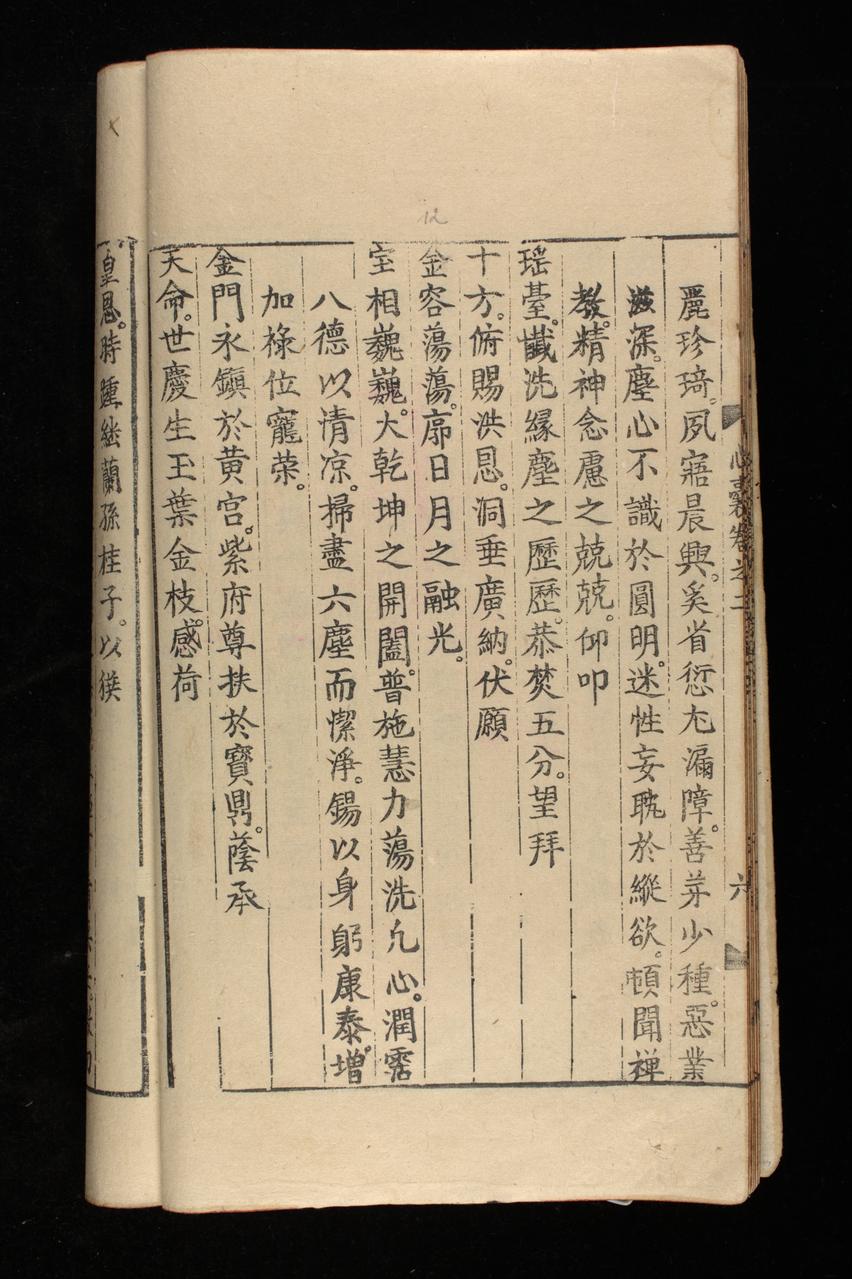 12
心囊卷之二
六
麗珍琦。夙寤晨興。奚省愆尤漏障。善芽少種。惡業
滋深。塵心不識於圓明。迷性妄耽於縱欲。頓聞禪
教。精神念慮之兢兢。仰叩
瑶臺。懺洗緣塵之歷歷。恭焚五分。望拜
十方。俯賜洪恩。洞垂廣納。伏願
金容蕩蕩。廓日月之融光。
宝相巍巍。大乾坤之開闔。普施慧力蕩洗凢心。潤霑
八德以清凉。掃盡六塵而潔淨。錫以身躬康泰。增
加祿位寵荣。
金門永鎭於黄宫。紫府尊扶於寳鼎。蔭承
天命。世慶生玉葉金枝。感荷
皇恩。時踵继蘭孫桂子。以